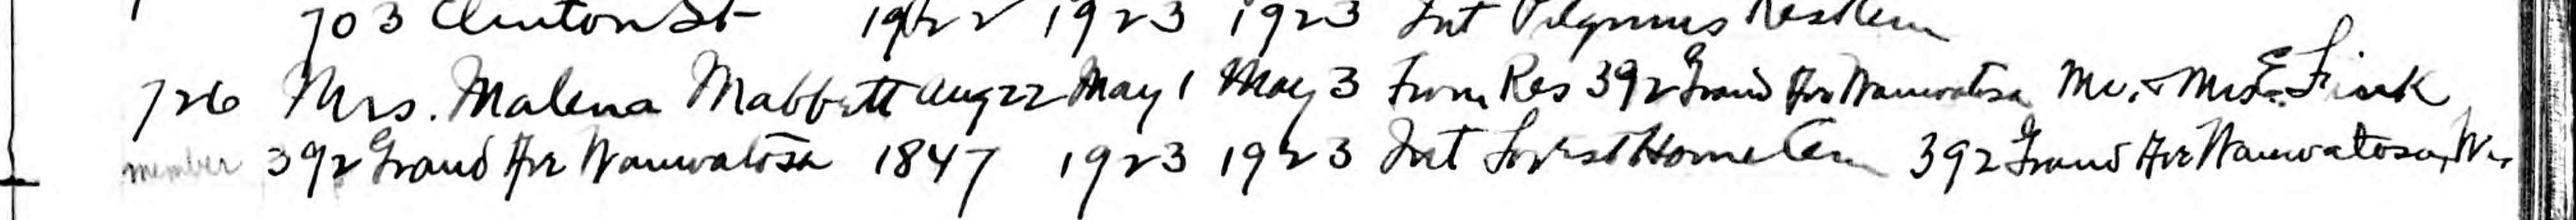 703 Clinton St 1922 1923 1923 Int Pilgrims Rest Cem
726 Mrs. Malena Mabbett Aug 22 May 1 May 3 From Res 392 Grand Ave Wauwatosa Mr. & Mrs. E. Fink
member 392 Grand Ave Wauwatosa 1847 1923 1923 Int Forest Home Cem 392 Grand Ave Wauwatosa, Wis